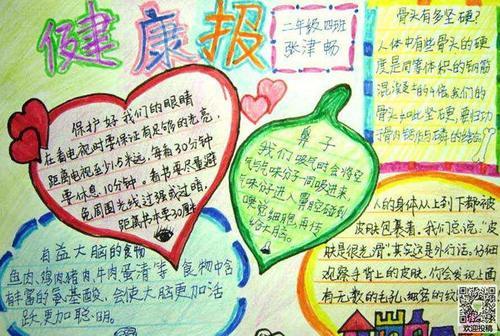 健康报
二年级四班
张津畅
骨头有多坚硬?
人体中有些骨头的硬
度是同等体积的钢筋
混凝土的十倍,我们的
骨头如此坚硬,要归功
保护好我们的眼睛
在看电视时要保证有足够的光亮,
距离电视至少5米远,每看30分钟
要休息10分钟。看书要尽量避
免周围光线过强或过暗,
距离书本要30厘米
鼻子
我们吸气时会将空
气与气味分子一同吸进来,
气味分子进入鼻腔碰到
嗅觉细胞,再传
给大脑。
有益大脑的食物
鱼肉,鸡肉猪肉,牛肉蛋清等食物中含
丰富的氨基酸,会使大脑更加活
跃,更加聪明。
人的身体从上到下都被
皮肤包裹着。我们总说:“皮
肤是很光滑”,其实这是外行话。仔细
观察手背上的皮肤,你会发现上面
有无数的毛孔,细密的纹
欢迎投稿